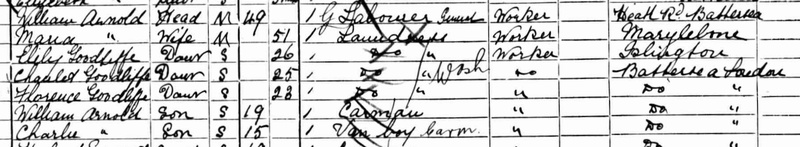 William Arnold Head M 49 1 G Labourer Worker Heath Rd Battersea
Maria " Wife M 51 1 Laundress Worker Marylebone
Goodliffe Daur S 26 1 Do " Worker Islington
Goodliffe Daur S 25 1 Do " Wash Do Battersea London
Florence Goodliffe Daur S 23 1 Do " " Do "
William Arnold Son S 19 1 Carman " Do "
Charlie " Son S 15 1 Van boy Carm. " Do "